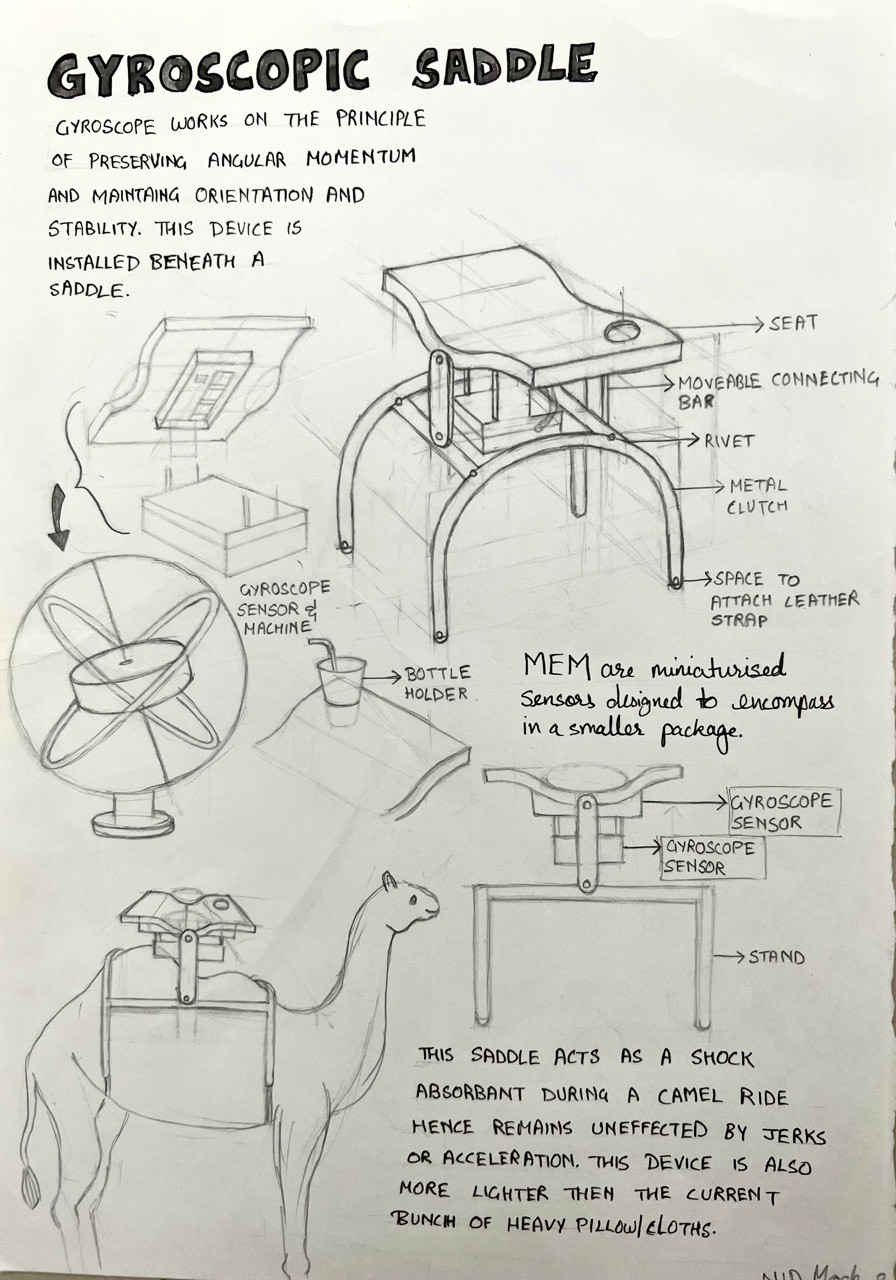 GYROSCOPIC SADDLE
GYROSCOPE WORKS ON THE PRINCIPLE
OF PRESERVING ANGULAR MOMENTUM
AND MAINTAING ORIENTATION AND
STABILITY. THIS DEVICE IS
INSTALLED BENEATH A
SADDLE.
SEAT
MOVEABLE CONNECTING
BAR
RIVET
METAL
CLUTCH
SPACE TO
ATTACH LEATHER
STRAP
GYROSCOPE
SENSOR &
MACHINE
BOTTLE
HOLDER
MEM are miniaturised
sensors designed to encompass
in a smaller package.
GYROSCOPE
SENSOR
GYROSCOPE
SENSOR
STAND
THIS SADDLE ACTS AS A SHOCK
ABSORBANT DURING A CAMEL RIDE
HENCE REMAINS UNEFFECTED BY JERKS
OR ACCELERATION. THIS DEVICE IS ALSO
MORE LIGHTER THEN THE CURRENT
BUNCH OF HEAVY PILLOW/CLOTHS.